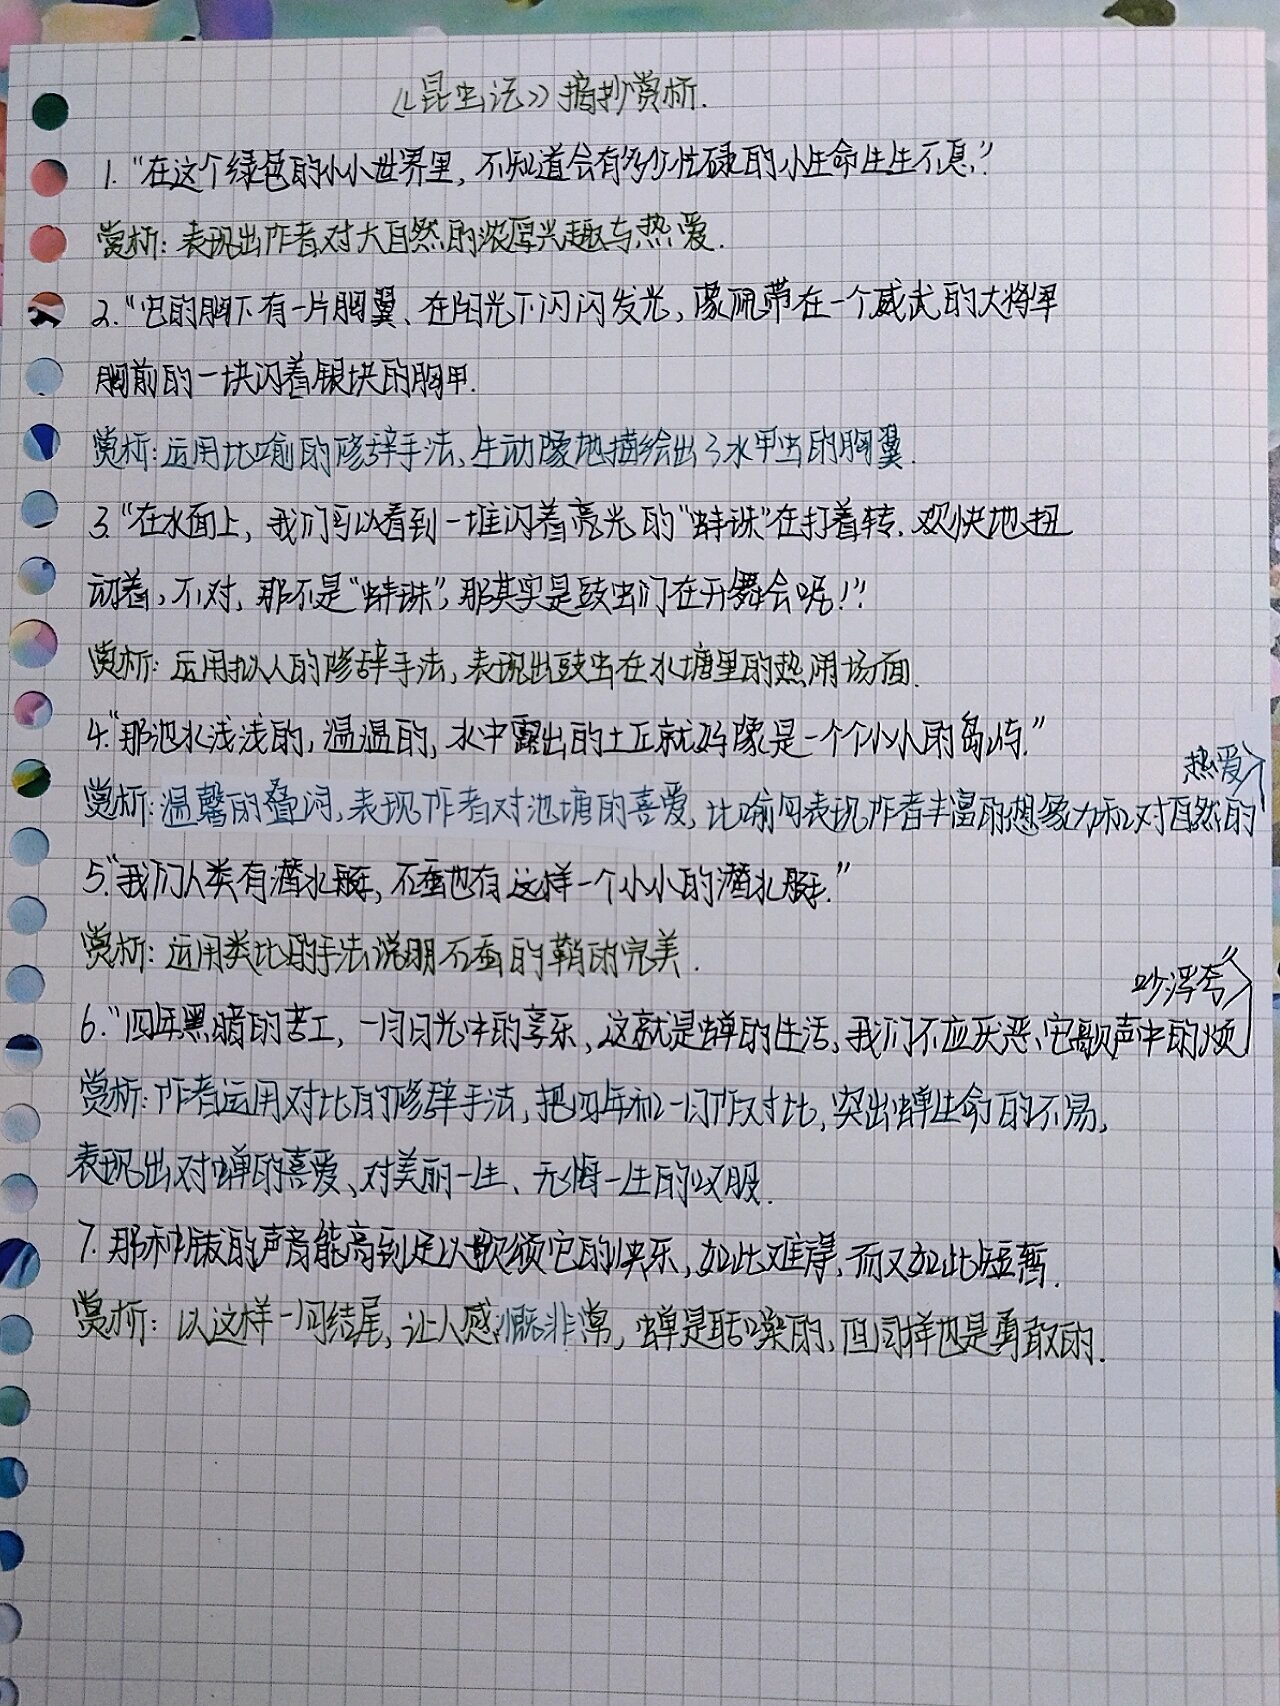 《昆虫记》摘抄赏析.
1. “在这个绿色的小小世界里，不知道会有多少忙碌的小生命生生不息.”
赏析：表现出作者对大自然的浓厚兴趣与热爱.
2.“它的胸下有一片胸翼、在阳光下闪闪发光，像佩带在一个威武的大将军
胸前的一块闪着银块的胸甲.
赏析：运用比喻的修辞手法、生动像地描绘出了水甲虫的胸翼.
3.“在水面上，我们可以看到一堆闪着亮光的“蚌珠”在打着转.欢快地扭
动着，不对，那不是“蚌珠”，那其实是豉虫们在开舞会呢！”
赏析：运用拟人的修辞手法，表现出豉虫在水塘里的热闹场面.
4.“那池水浅浅的，温温的，水中露出的土丘就好像是一个个小小的岛屿.”
赏析：温馨的叠词，表现作者对池塘的喜爱，比喻句表现作者丰富的想象力和对自然的
热爱
5.“我们人类有潜水艇，石蚕也有这样一个小小的潜水艇.”
赏析：运用类比的手法说明石蚕的鞘的完美.
6.“四年黑暗的苦工，一月日光中的享乐，这就是蝉的生活，我们不应厌恶它歌声中的烦
吵浮夸”
赏析：作者运用对比的修辞手法，把四年和一月作对比，突出蝉生命的不易，
表现出对蝉的喜爱、对美丽一生、无悔一生的叹服.
7. 那种钹的声音能高到足以歌颂它的快乐，如此难得，而又如此短暂.
赏析：以这样一句结尾，让人感慨非常，蝉是聒噪的，但同样也是勇敢的.